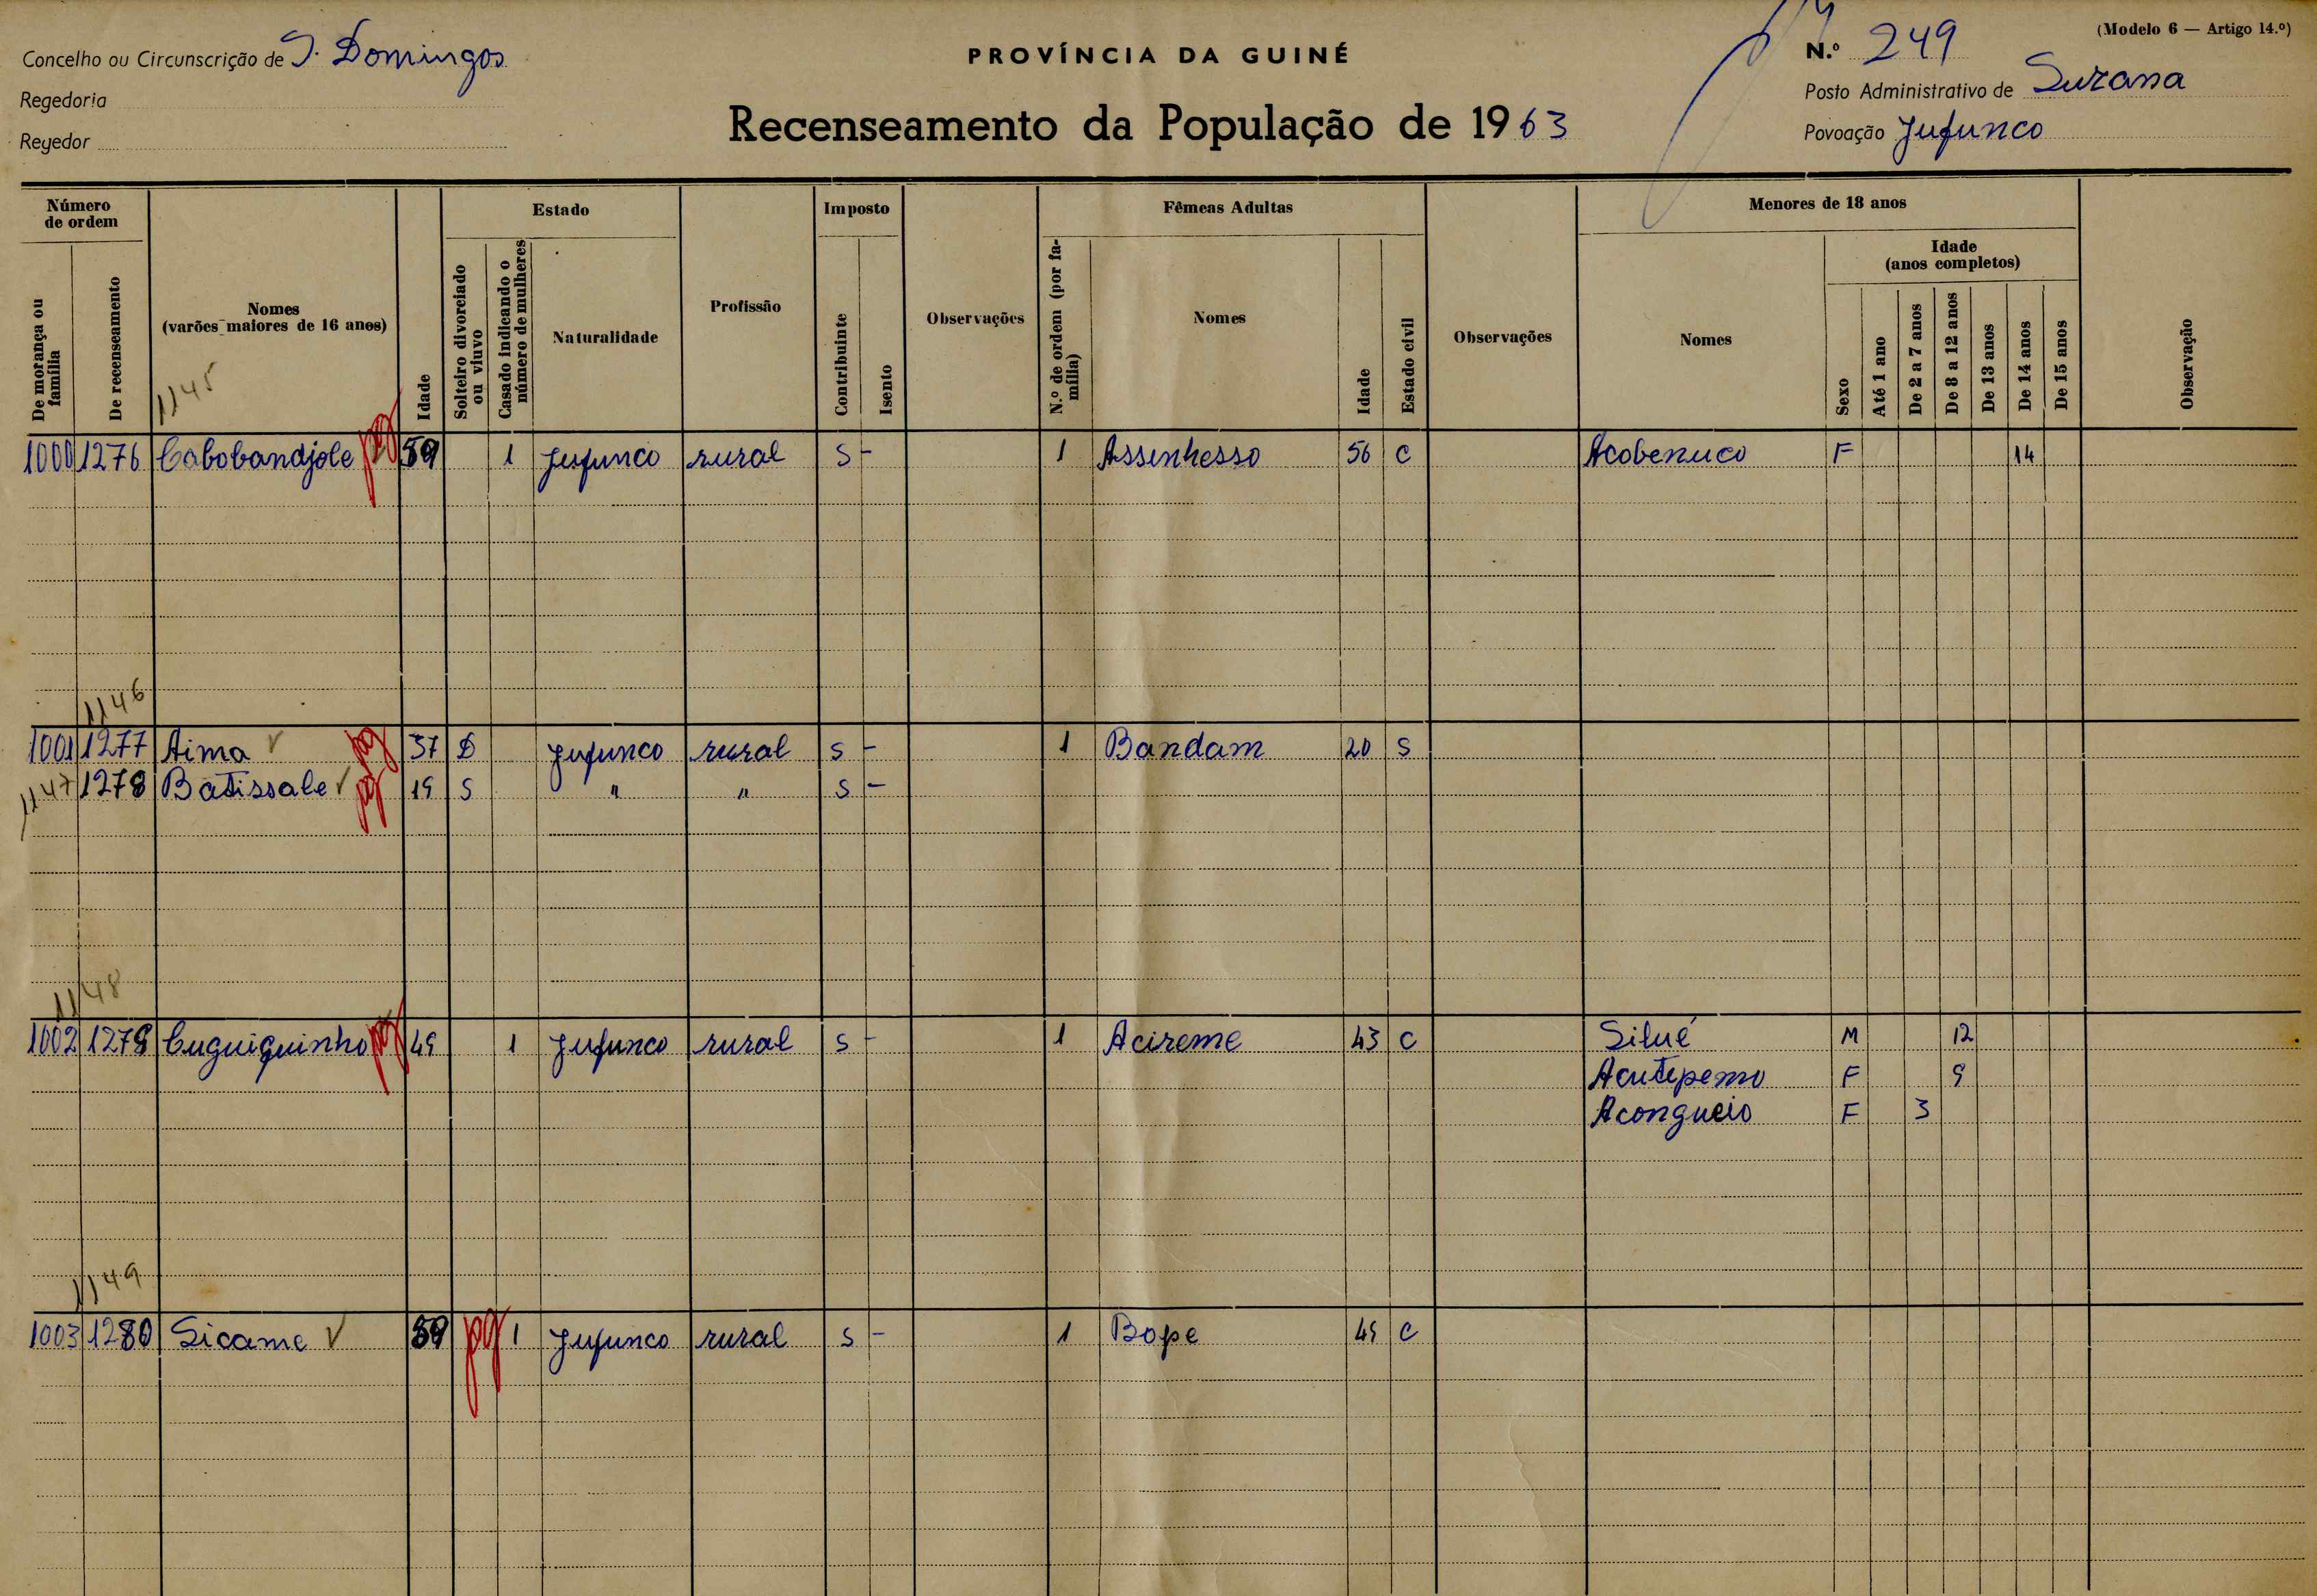 (Modelo 6 — Artigo 14.º)
Concelho ou Circunscrição de S. Domingos
PROVÍNCIA DA GUINÉ
N.º 249
Regedoria
Posto Administrativo de Suzana
Regedor
Recenseamento da População de 1963
Povoação Jufunco
Número de ordem
Estado
Imposto
Fêmeas Adultas
Menores de 18 anos
Idade (anos completos)
De morança ou família
De recenseamento
Nomes (varões maiores de 16 anos)
Idade
Solteiro divorciado ou viuvo
Casado indicando o número de mulheres
Naturalidade
Profissão
Contribuinte
Isento
Observações
N.º de ordem (por família)
Nomes
Idade
Estado civil
Observações
Nomes
Sexo
Até 1 ano
De 2 a 7 anos
De 8 a 12 anos
De 13 anos
De 14 anos
De 15 anos
Observação
1145
1000 1276 Cabobandjole pg 59 1 Jufunco rural S - 1 Assenhesso 56 C Acobenuco F 14
1146
1001 1277 Aima pg 37 D Jufunco rural S - 1 Bandam 20 S
1147 1278 Batissale pg 19 S " " S -
1148
1002 1279 Cuguiquinho pg 49 1 Jufunco rural S - 1 Acireme 43 C Silué M 12
Acutepemo F 9
Acongueio F 3
1149
1003 1280 Sicame 59 pg 1 Jufunco rural S - 1 Bope 49 C